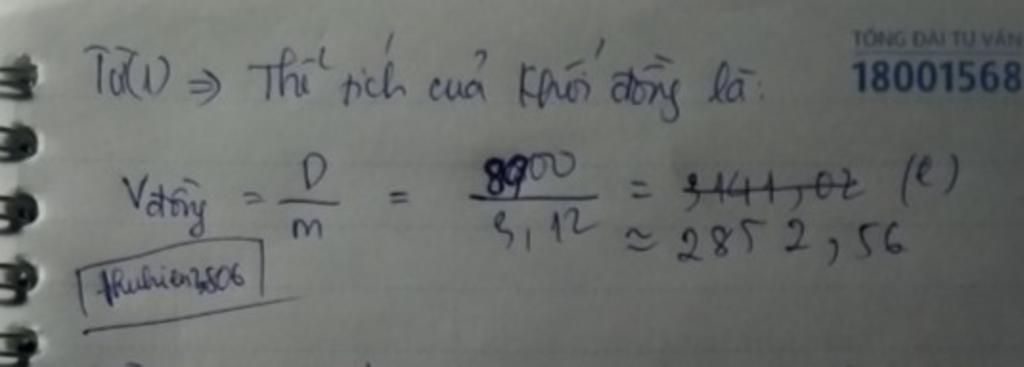 TỔNG ĐÀI TƯ VẤN
18001568
Từ(1) ⇒ Thể tích của khối đồng là:
Vđồng = D/m = 8900/3,12 = 3141,02 (l)
≈ 2852,56
thuhien2806